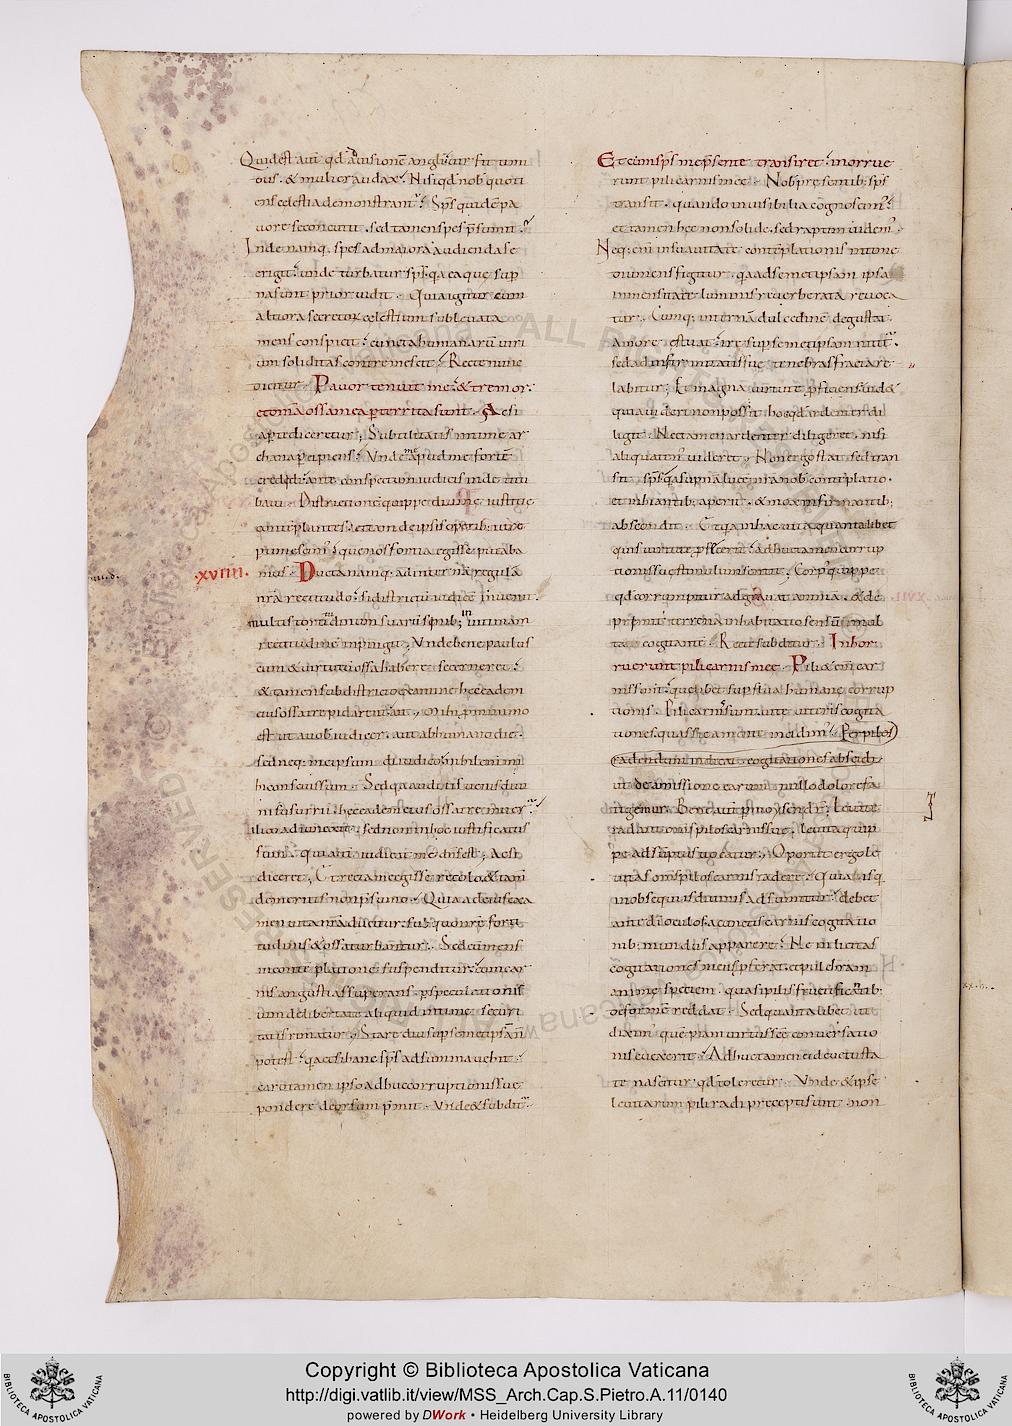 Quid est aut qd ad uisionē angli uir fit timi
dus. & mulier audax. Nisi qd nob quoti
ens celestia demonstrant. Sps quidē pa
uore se concutit. sed tamen spes psumit.
Inde namq. spes ad maiora audienda se
erigit. unde turbatur sps. qa ea que sup
na sunt prior uidit. Quia igitur cum
altiora secretorum celestium subleuata
mens conspicit. cuncta humanarū uiri
um soliditas contremescit. Recte nunc
dicitur. Pauor tenuit me. & tremor.
et omīa ossa mea perterrita sunt. Ac si
aperte diceretur; Subtilitatis intime ar
chana percipiens. Vnde me apud me fortē
credidi. ante conspectum iudicis inde titu
baui. Districtionē quippe diuine iustitie
contēplantes.
mus. Ducta namq. ad internā regulā
.xviiii.
nrā rectitudo. si districtū iudicē inuenit.
multis tortitudinum suarū spub; in intimam
rectitudinē impingit. Vnde bene paulus
cum & uirtutū ossa habere se cerneret.
& tamen sub districto examine hec eadem
eius ossa trepidarent. ait. Mihi p minimo
est ut a uobis iudicer. aut ab humano die.
sed neq. me ipsum diiudico. nihil enim mi
hi conscius sum. Sed qa auditis uenis diui
ni susurrii. hec eadem eius ossa
sed non in hoc iustificatus
sum. qui autē iudicat me dns est. Ac si
diceret. Et recta me egisse recolo & tam
de meritis non psumo. Quia ad eius exa
men uita nrā ducitur. sub quo nrē forti
tudinis & ossa turbantur. Sed cū mens
in contēplatione suspenditur. cum car
nis angustias superans. p speculationis
uim de libertate aliquid intime securi
tatis rimatur. Stare diu sup semetipsam n
potest. qa etsi hanc sps ad summa uehit.
caro tamen ipso adhuc corruptionis sue
pondere deorsum pmit. Vnde & subdit.
Et cum sps me psente transiret. inhorrue
runt pili carnis mee. Nob presentib; sps
transit. quando inuisibilia cognoscim.
et tamen hec non solide. sed raptim uidem.
Neq. eni in suauitate contēplationis intime
diu mens figitur. qa ad semetipsam ipsa
inmensitate luminis reuerberata reuoca
tur. Cumq. internā dulcedinē degustat.
amore estuat. ire sup semetipsam nitit.
sed ad infirmitatis sue tenebras fracta re
labitur; Et magna uirtute pficiens. uid&
quia uidere non possit. hoc qd ardenter di
ligit. Nec tamen ardenter diligeret. nisi
aliquaten uideret. Non ergo stat sed tran
sit. sps. qa supnā lucē nrā nob contēplatio.
et inhiantib; aperit. & mox infirmantib;
abscondit. Et qa in hac uita quantalibet
quis uirtute pfecerit. adhuc tamen corrup
tionis sue stimulum sentit. Corpus quippe
qd corrumpitur adgrauat anima. & de
primit terrena inhabitatio sensū mul
ta cogitante. Recte subditur. Inhor
ruerunt pili carnis mee. Pili eni car
nis sunt. quelibet supflua humane corrup
tionis. Pili carnis sunt uite ueteris cogita
tiones. quas sic a mente incidim. Per pilos
radendum indicat. cogitationes abscidi
ut de amissione earum nullo dolore fa
tigemur. Bene autē p moysen dr. Leuite
radant omīs pilos carnis sue. leuita quip
pe adsūptus uocatur. Oportet ergo le
uitas omīs pilos carnis radere. Quia is q
in obsequiis diuinis adsumitur. debet
ante di oculos. a cunctis carnis cogitatio
nib; mundus apparere. Ne inlicitas
cogitationes mens pferat. et pulchram
anime speciem. quasi pilis fruticantib;
deformē reddat. Sed quamlibet ut
diximus quē piam uirtus sce conuersatio
nis euexerit. Adhuc tamen ei de uetusta
te nascitur. qd toleretur. Vnde & ipse
leuitarum pili radi precepti sunt. non
Copyright © Biblioteca Apostolica Vaticana
http://digi.vatlib.it/view/MSS_Arch.Cap.S.Pietro.A.11/0140
powered by DWork • Heidelberg University Library
BIBLIOTECA APOSTOLICA VATICANA
BIBLIOTECA APOSTOLICA VATICANA